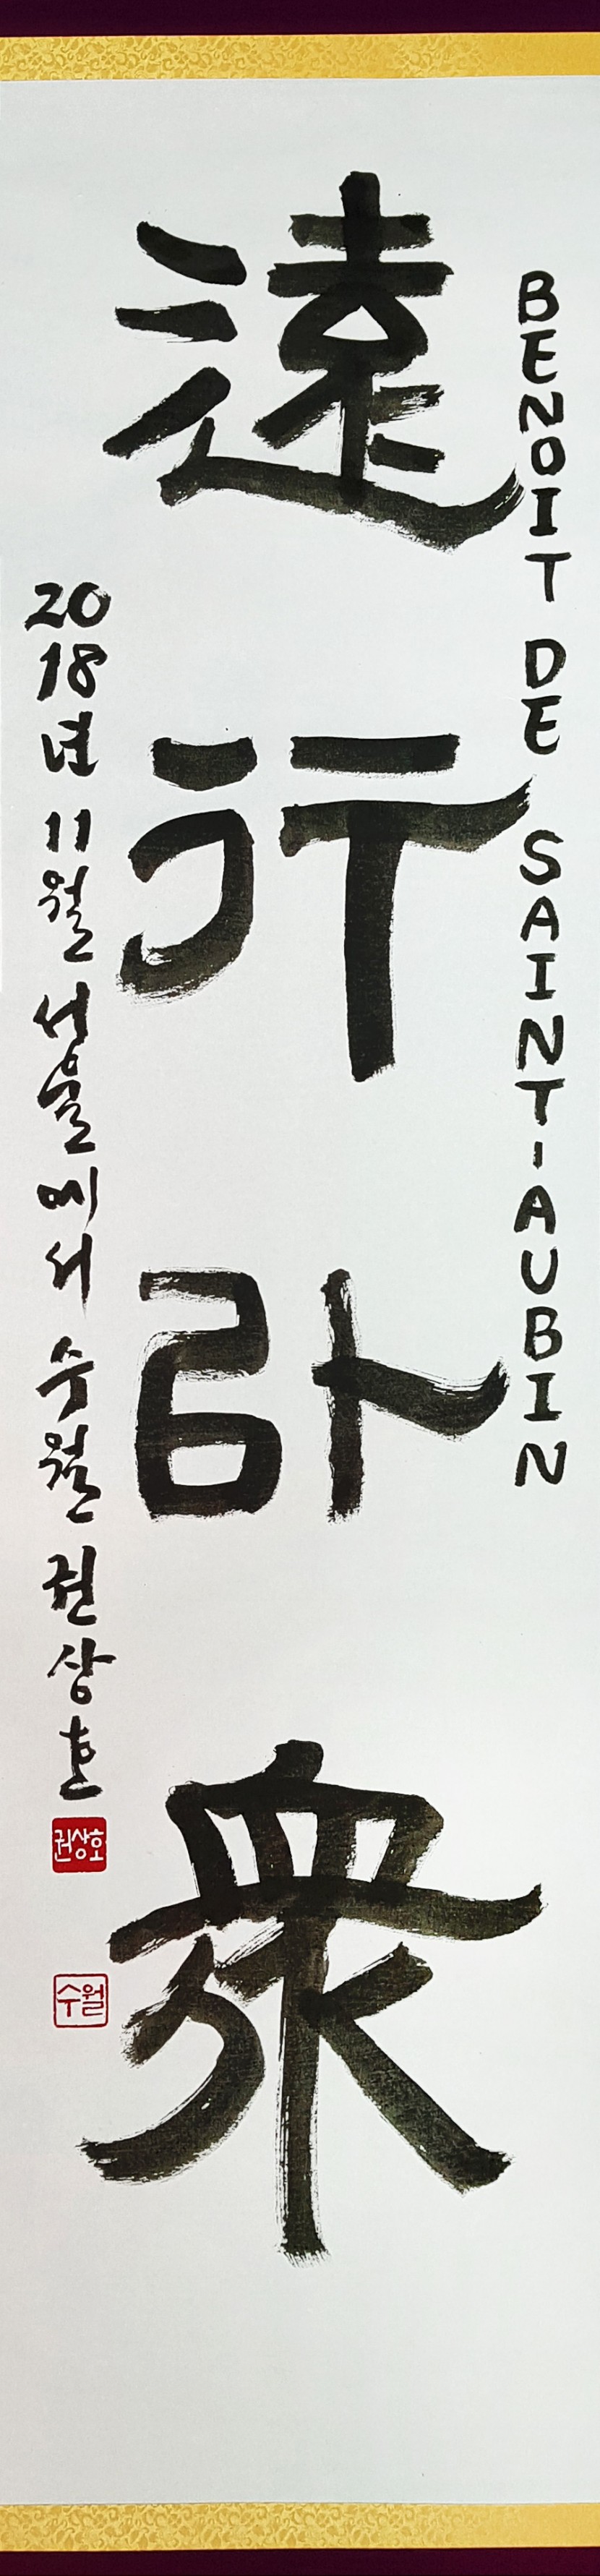 BENOIT DE SAINT-AUBIN
遠行 衆
2018년 11월 서울에서 수월 권상호
권상호
수월